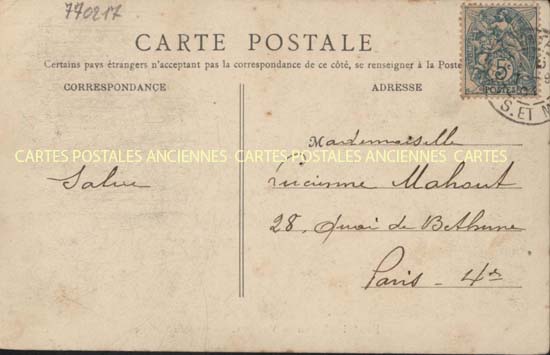 770217
CARTE POSTALE
Certains pays étrangers n'acceptant pas la correspondance de ce côté, se renseigner à la Poste
CORRESPONDANCE
ADRESSE
5c
POSTES
S. ET M
Mademoiselle
CARTES POSTALES ANCIENNES CARTES POSTALES ANCIENNES CARTES
Salue
Lucienne Mahout
28, Quai de Bethune
Paris - 4e